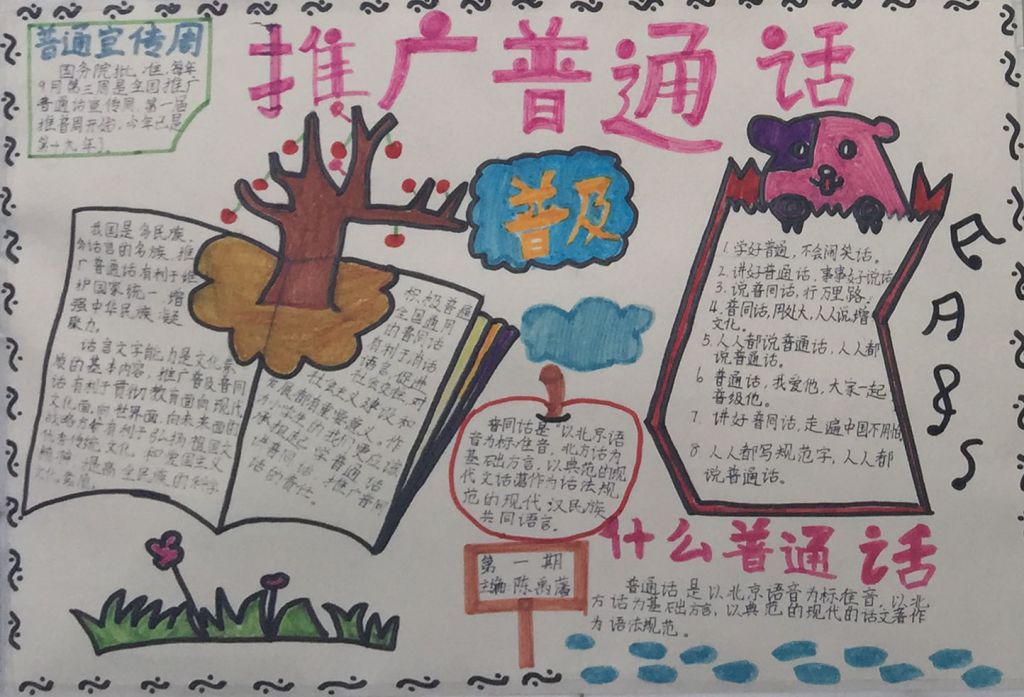 推广普通话
普通宣传周
国务院批准,每年
9月第三周是全国推广
普通话宣传周,第一届
推普周开始,今年已是
第十九年了。
普及
我国是多民族,
多语言的名族,推
广普通话有利于维
护国家统一,增
强中华民族凝
聚力。
语言文字能力是文化素
质的基本内容,推广普及普同
话有利于贯彻教育面向现代
化面向世界面向未来面的
战略方针有利于弘扬祖国文
优秀传统文化和爱国主义
精神,提高全民族的科学
积极普通
全国通用
的普同话
有利于消话
语言促进
社会交往,对
社会主义建设和
发展都有重要意义。作
为小学生的我们更应该
承担起学普通话
讲普同话推广普同
话的责任。
普同话是“以北京语
音为标准音,北方话为
基础方言,以典范的现
代文话著作为话法规
范的现代汉民族
共同语言。
第一期
主编 陈禹藩
1. 学好普通,不会闹笑话。
2. 讲好普通话,事事好说话
3. 说普同话,行万里路。
4. 普同话,用处大,人人说,增
文化。
5. 人人都说普通话,人人都
说普通话。
6 普通话,我爱他,大家一起
普级他。
7. 讲好普同话,走遍中国不用怕
8. 人人都写规范字,人人都
说普通话。
什么普通话
普通话是以北京语音为标准音,以北
方话为基础方言,以典范的现代的话文著作
为语法规范。